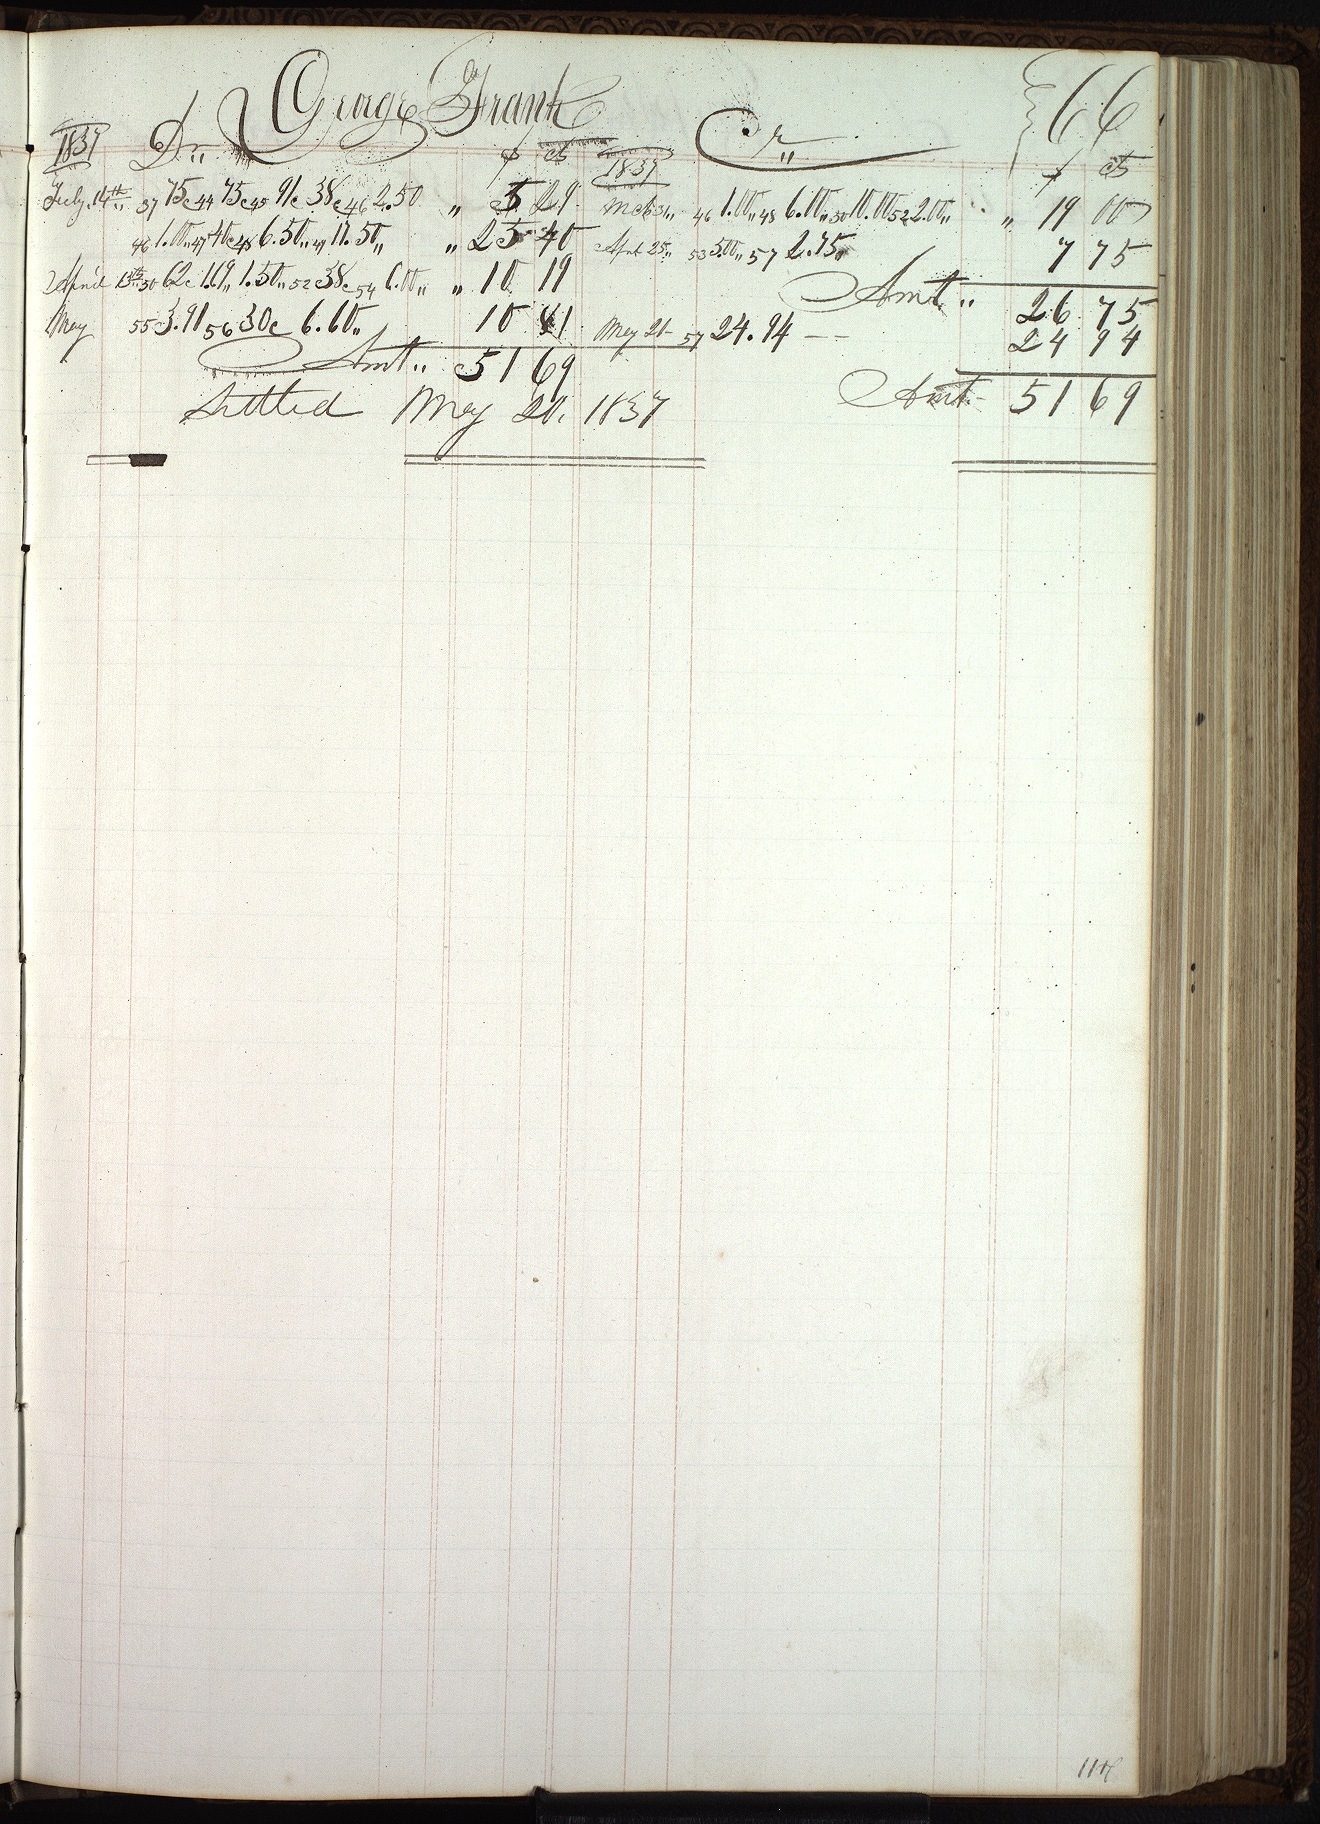 George Frank
66
1837 Dr,, $ cts
July 14th,, 37 75c 44 75c 45 91c 38c 46 2.50 ,, 5 29
46 1.00,, 47 40c 48 6.50,, 49 17.50,, ,, 25 40
April 13th,, 50 62c 1.69,, 1.50,, 52 38c 54 6.00,, ,, 10 19
May 55 3.91 56 30c 6.60,, 10 81
Amt ,, 51 69
Settled May 20, 1837
1837 Cr,, $ cts
Mch 31,, 46 1.00,, 48 6.00,, 50 10.00 52 2.00,, ,, 19 00
April 25,, 53 5.00,, 57 2.75,, 7 75
Amt ,, 26 75
May 21 57 24.94 -- 24 94
Amt - 51 69